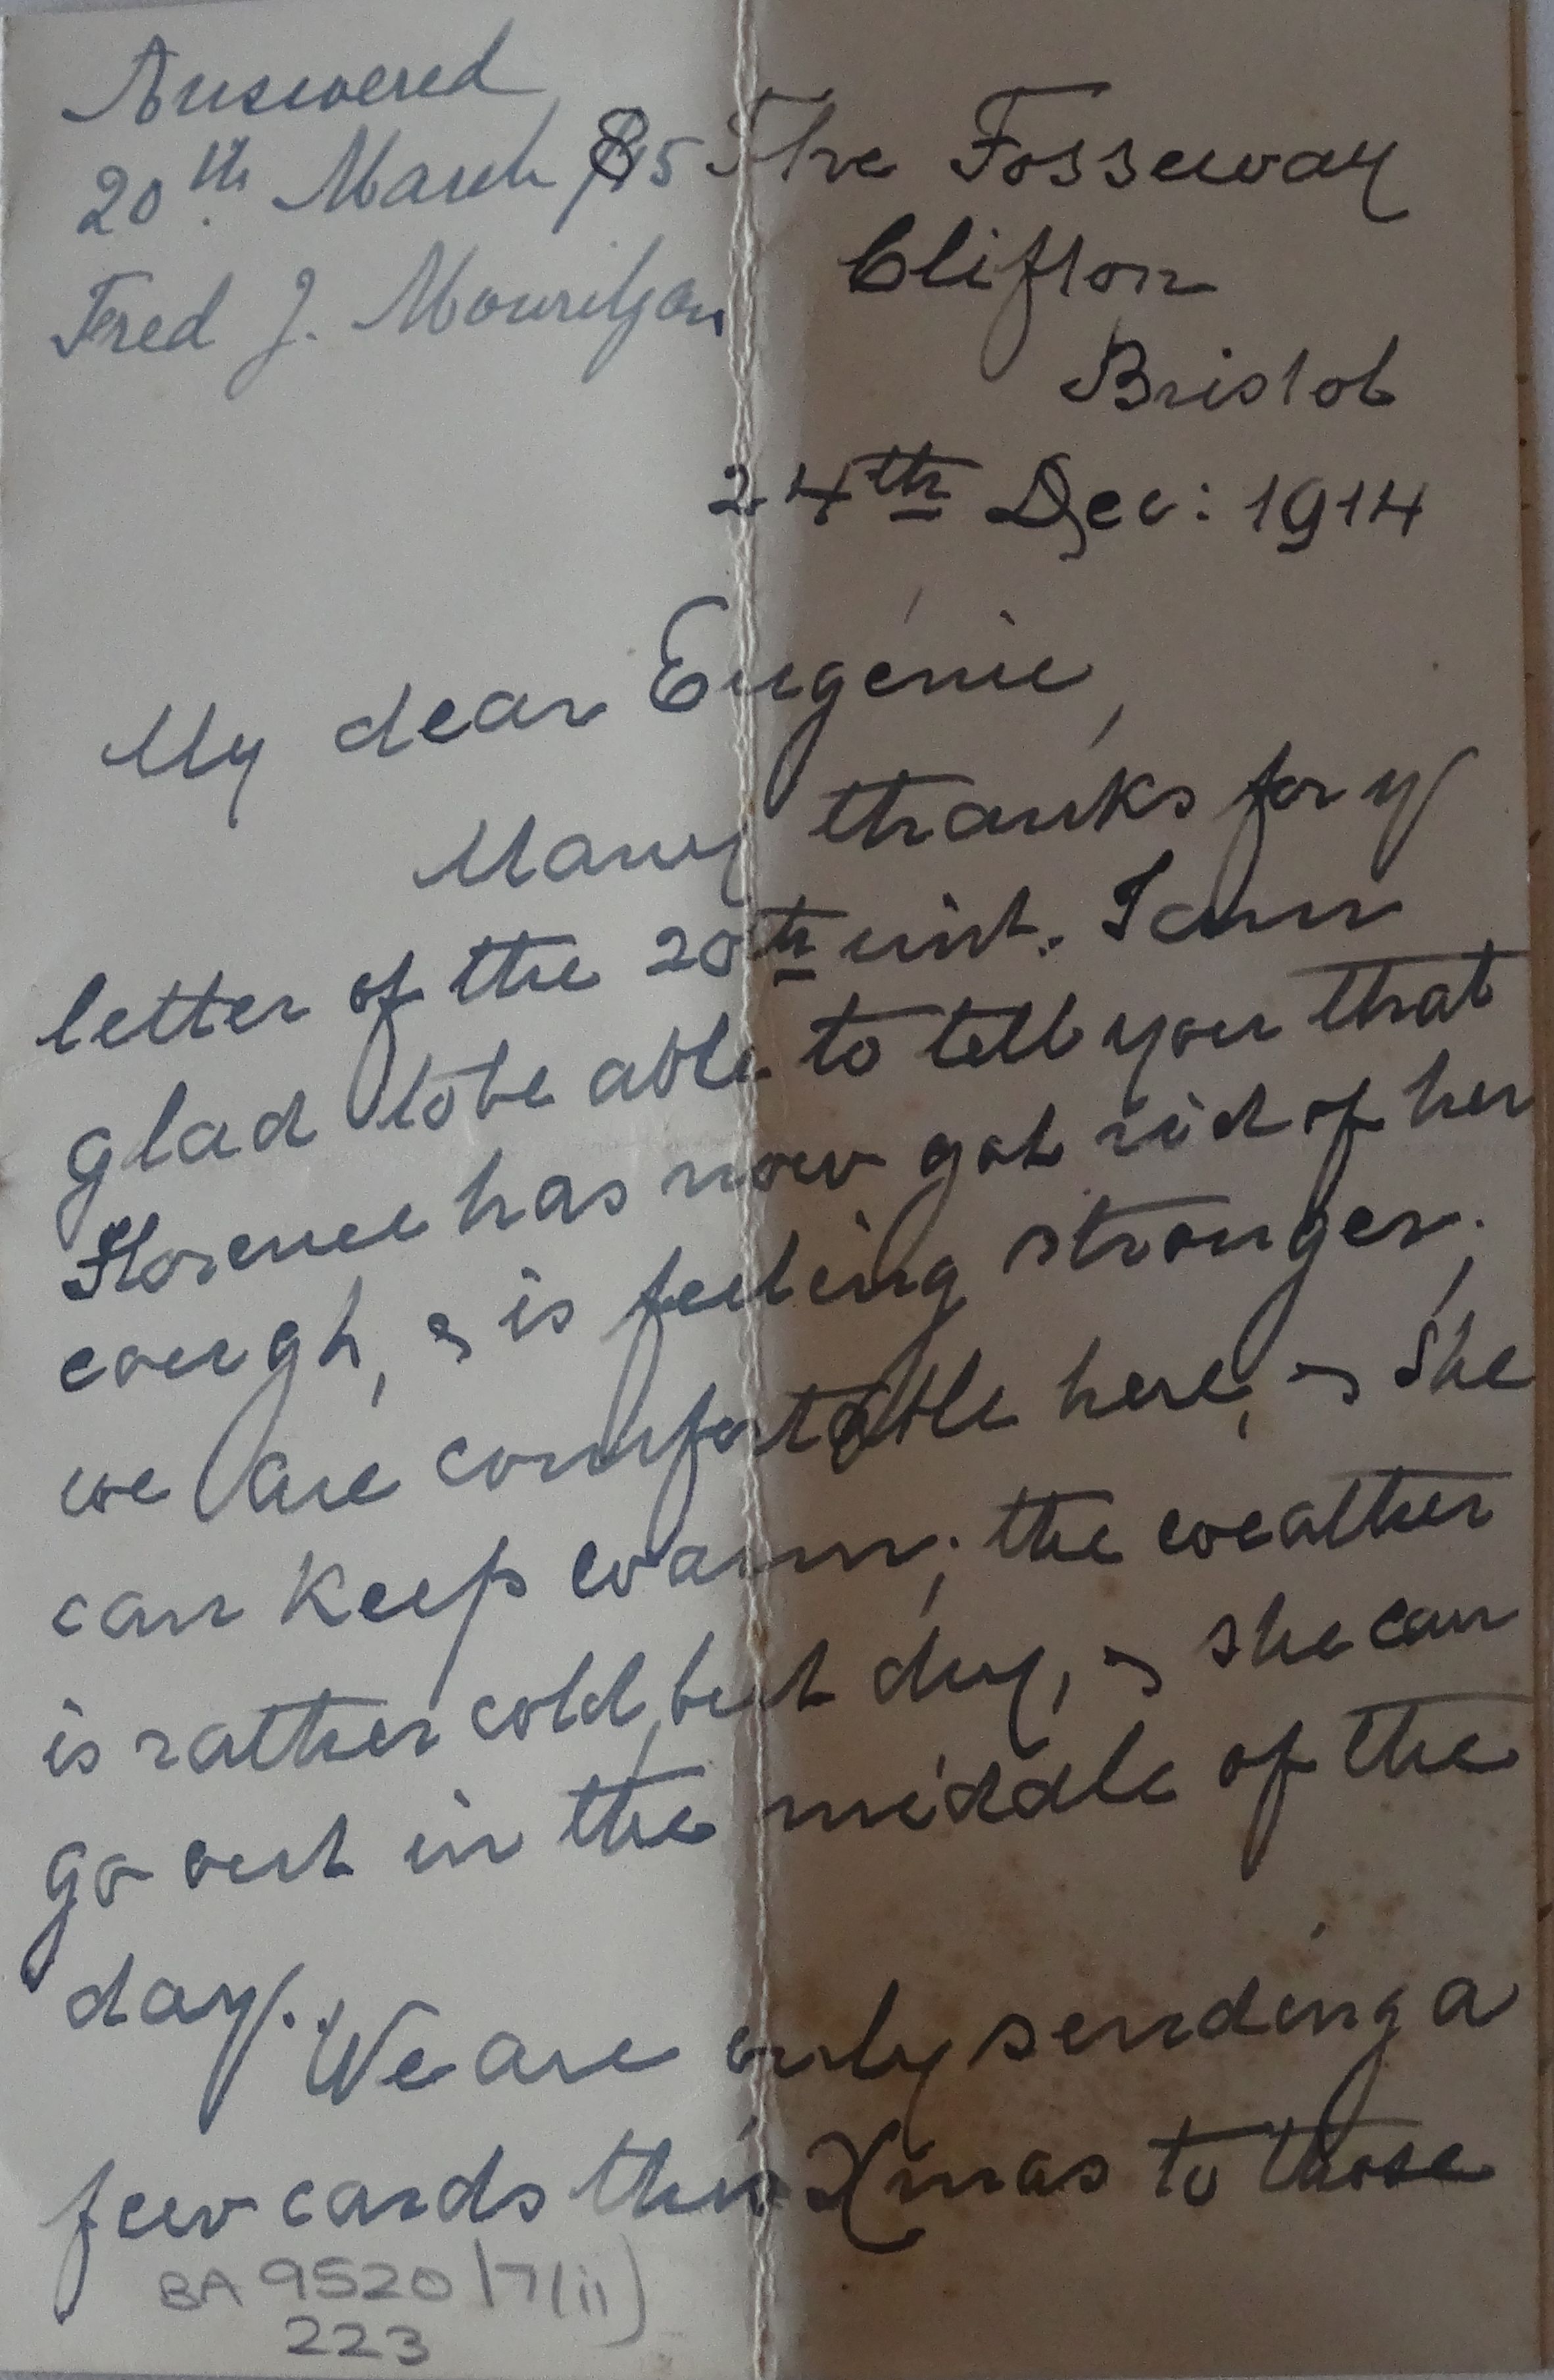 Answered
20th March 15 8
Fred J. Mourilyan
The Fosseway
Clifton
Bristol
24th Dec: 1914
My dear Eugénie,
Many thanks for yr
letter of the 20th inst. I am
glad to be able to tell you that
Florence has now got rid of her
cough, & is feeling stronger;
we are comfortable here, & she
can keep warm; the weather
is rather cold, but dry, & she can
go out in the middle of the
day. We are only sending a
few cards this Xmas to those
BA 9520/7(ii)
223